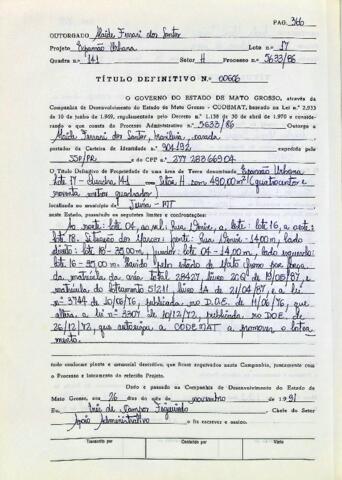 PAG. 366
OUTORGADO Maide Ferrari dos Santos
Projeto Expansão Urbana Lote n.º 17
Quadra n.º 141 Setor H Processo n.º 5633/86
TÍTULO DEFINITIVO N.º 00606
O GOVERNO DO ESTADO DE MATO GROSSO, através da
Companhia de Desenvolvimento do Estado de Mato Grosso - CODEMAT, baseado na Lei n.º 2.933
de 10 de junho de 1969, regulamentada pelo Decreto n.º 1.138 de 30 de abril de 1970 e conside-
rando o que consta do Processo Administrativo n.º 5633/86 Outorga a
Maide Ferrari dos Santos, brasileira, casada
portador da Carteira de Identidade n.º 904.192 expedida pela
SSP/PR e do CPF n.º 277 283 669 04
O Título Definitivo de Propriedade de uma área de Terra denominada Expansão Urbana
Lote 17 - Quadra 141 - Setor H com 490,00 m² (quatrocentos e
noventa metros quadrados)
localizado no município de Juína - MT
neste Estado, passando os seguintes limites e confrontações:
Ao norte: lote 04, ao sul: Rua, a leste: lote 16, a oeste:
lote 18. Situação dos Marcos: frente: Rua - 14,00 m, lado
direito: lote 18 - 35,00 m, fundos: lote 04 - 14,00 m, lado esquerdo:
lote 16 - 35,00 m. Havido pelo estado de Mato Grosso por força
da matrícula da área total 28427, livro 2 de 19/05/87 e
matrícula do loteamento 51211, livro 1A de 21/04/87, e a lei
n.º 3744 de 10/06/76, publicada no D.O.E. de 11/06/76, que
altera a lei n.º 3307 de 10/12/72, publicada no D.O.E. de
26/12/72, que autoriza a CODEMAT a promover o lotea
mento.
tudo conforme planta e memorial descritivo, que ficam arquivados nesta Companhia, juntamente com
o Processo e loteamento do referido Projeto.
Dado e passado na Companhia de Desenvolvimento do Estado de
Mato Grosso, aos 26 dias do mês de novembro de 1991
Eu, Inês de Campos Figueiredo Chefe do Setor
Apoio Administrativo o fiz escrever e assino.
Transcrito por Conferido por Visto